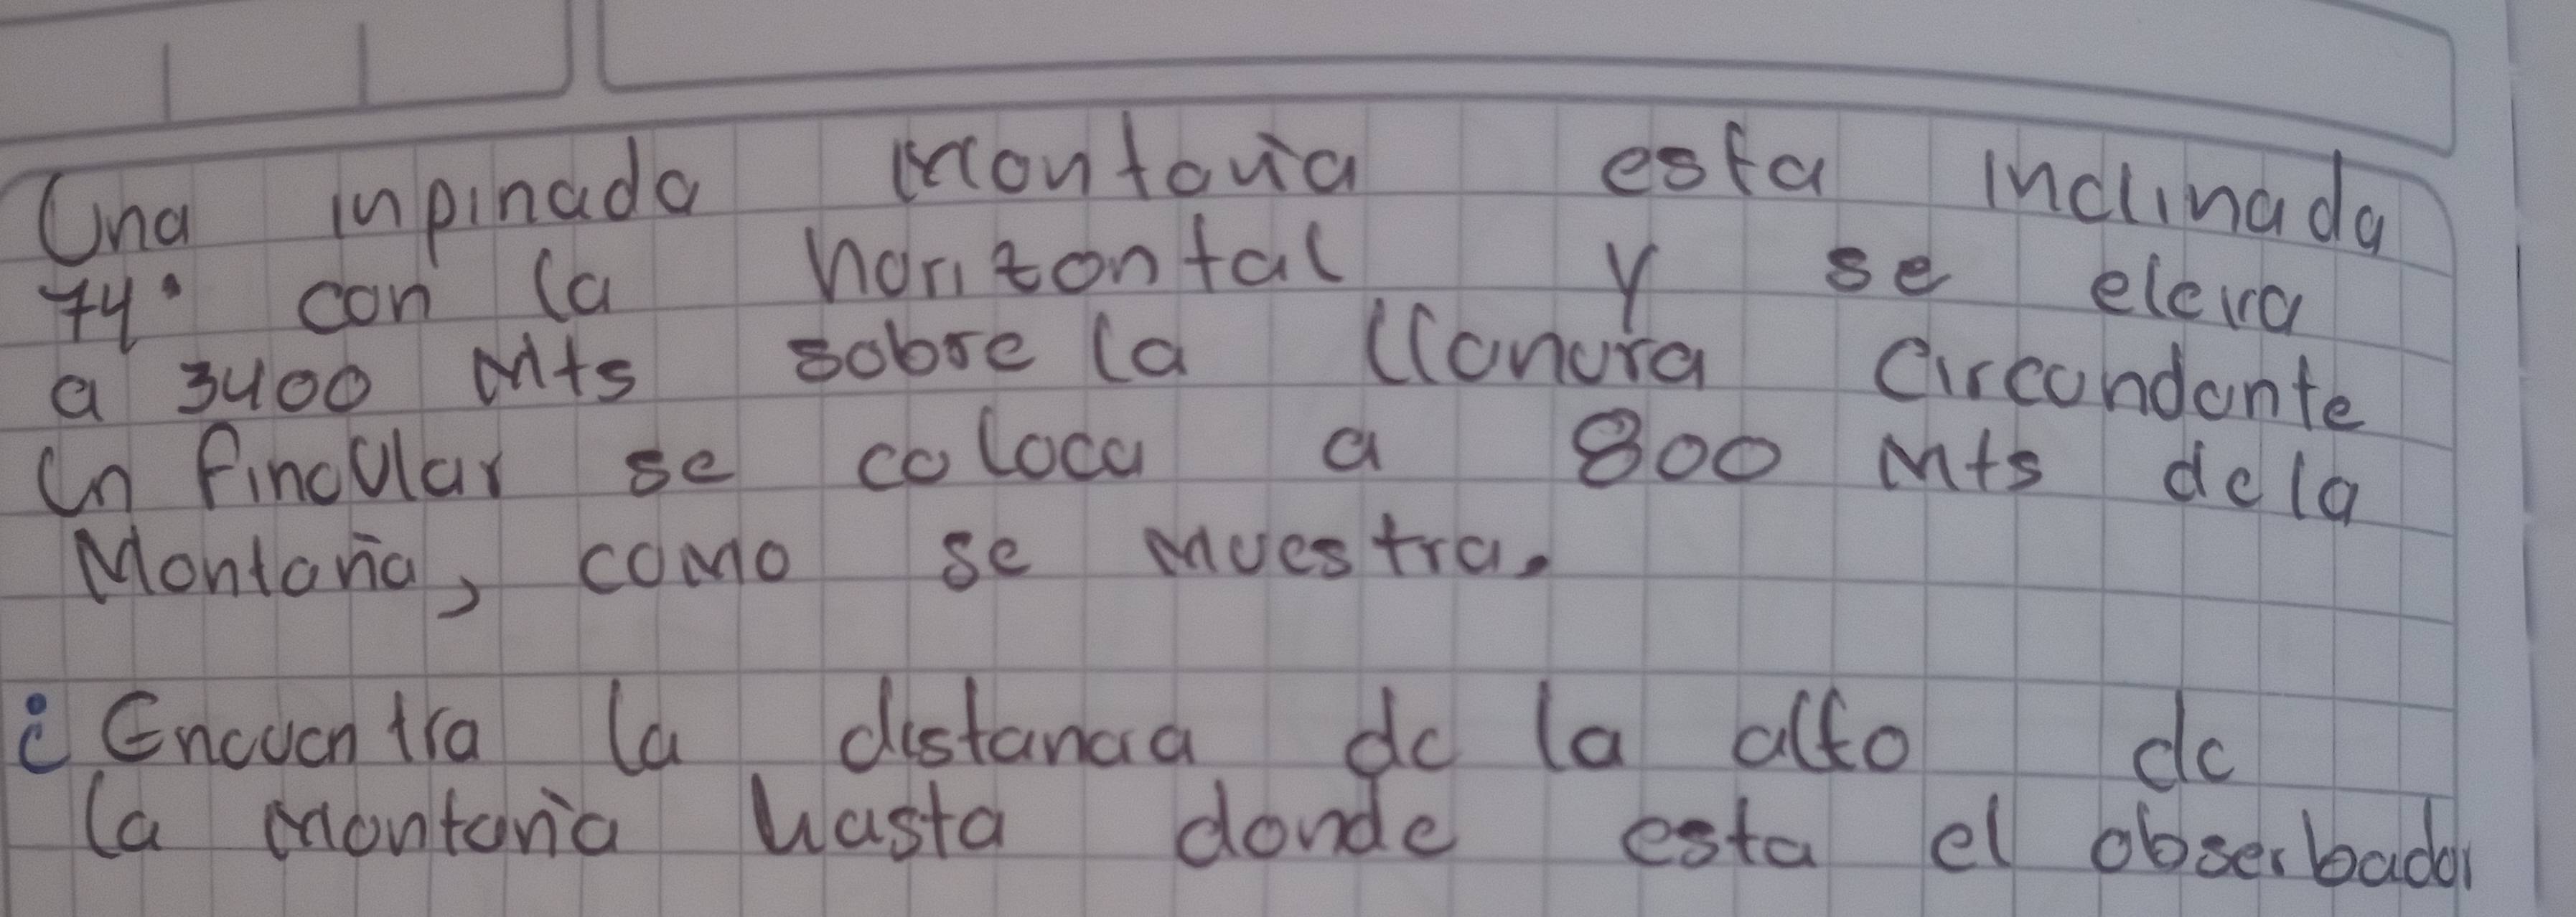 Una inpinada montaña esta inclinada
74° con la horizontal y se eleva
a 3400 Mts sobre la llanura circundante
Un fincular se coloca a 800 Mts dela
Montaña, como se muestra.
¿ Encuentra la distancia de la alto de
la montaña hasta donde esta el obserbador